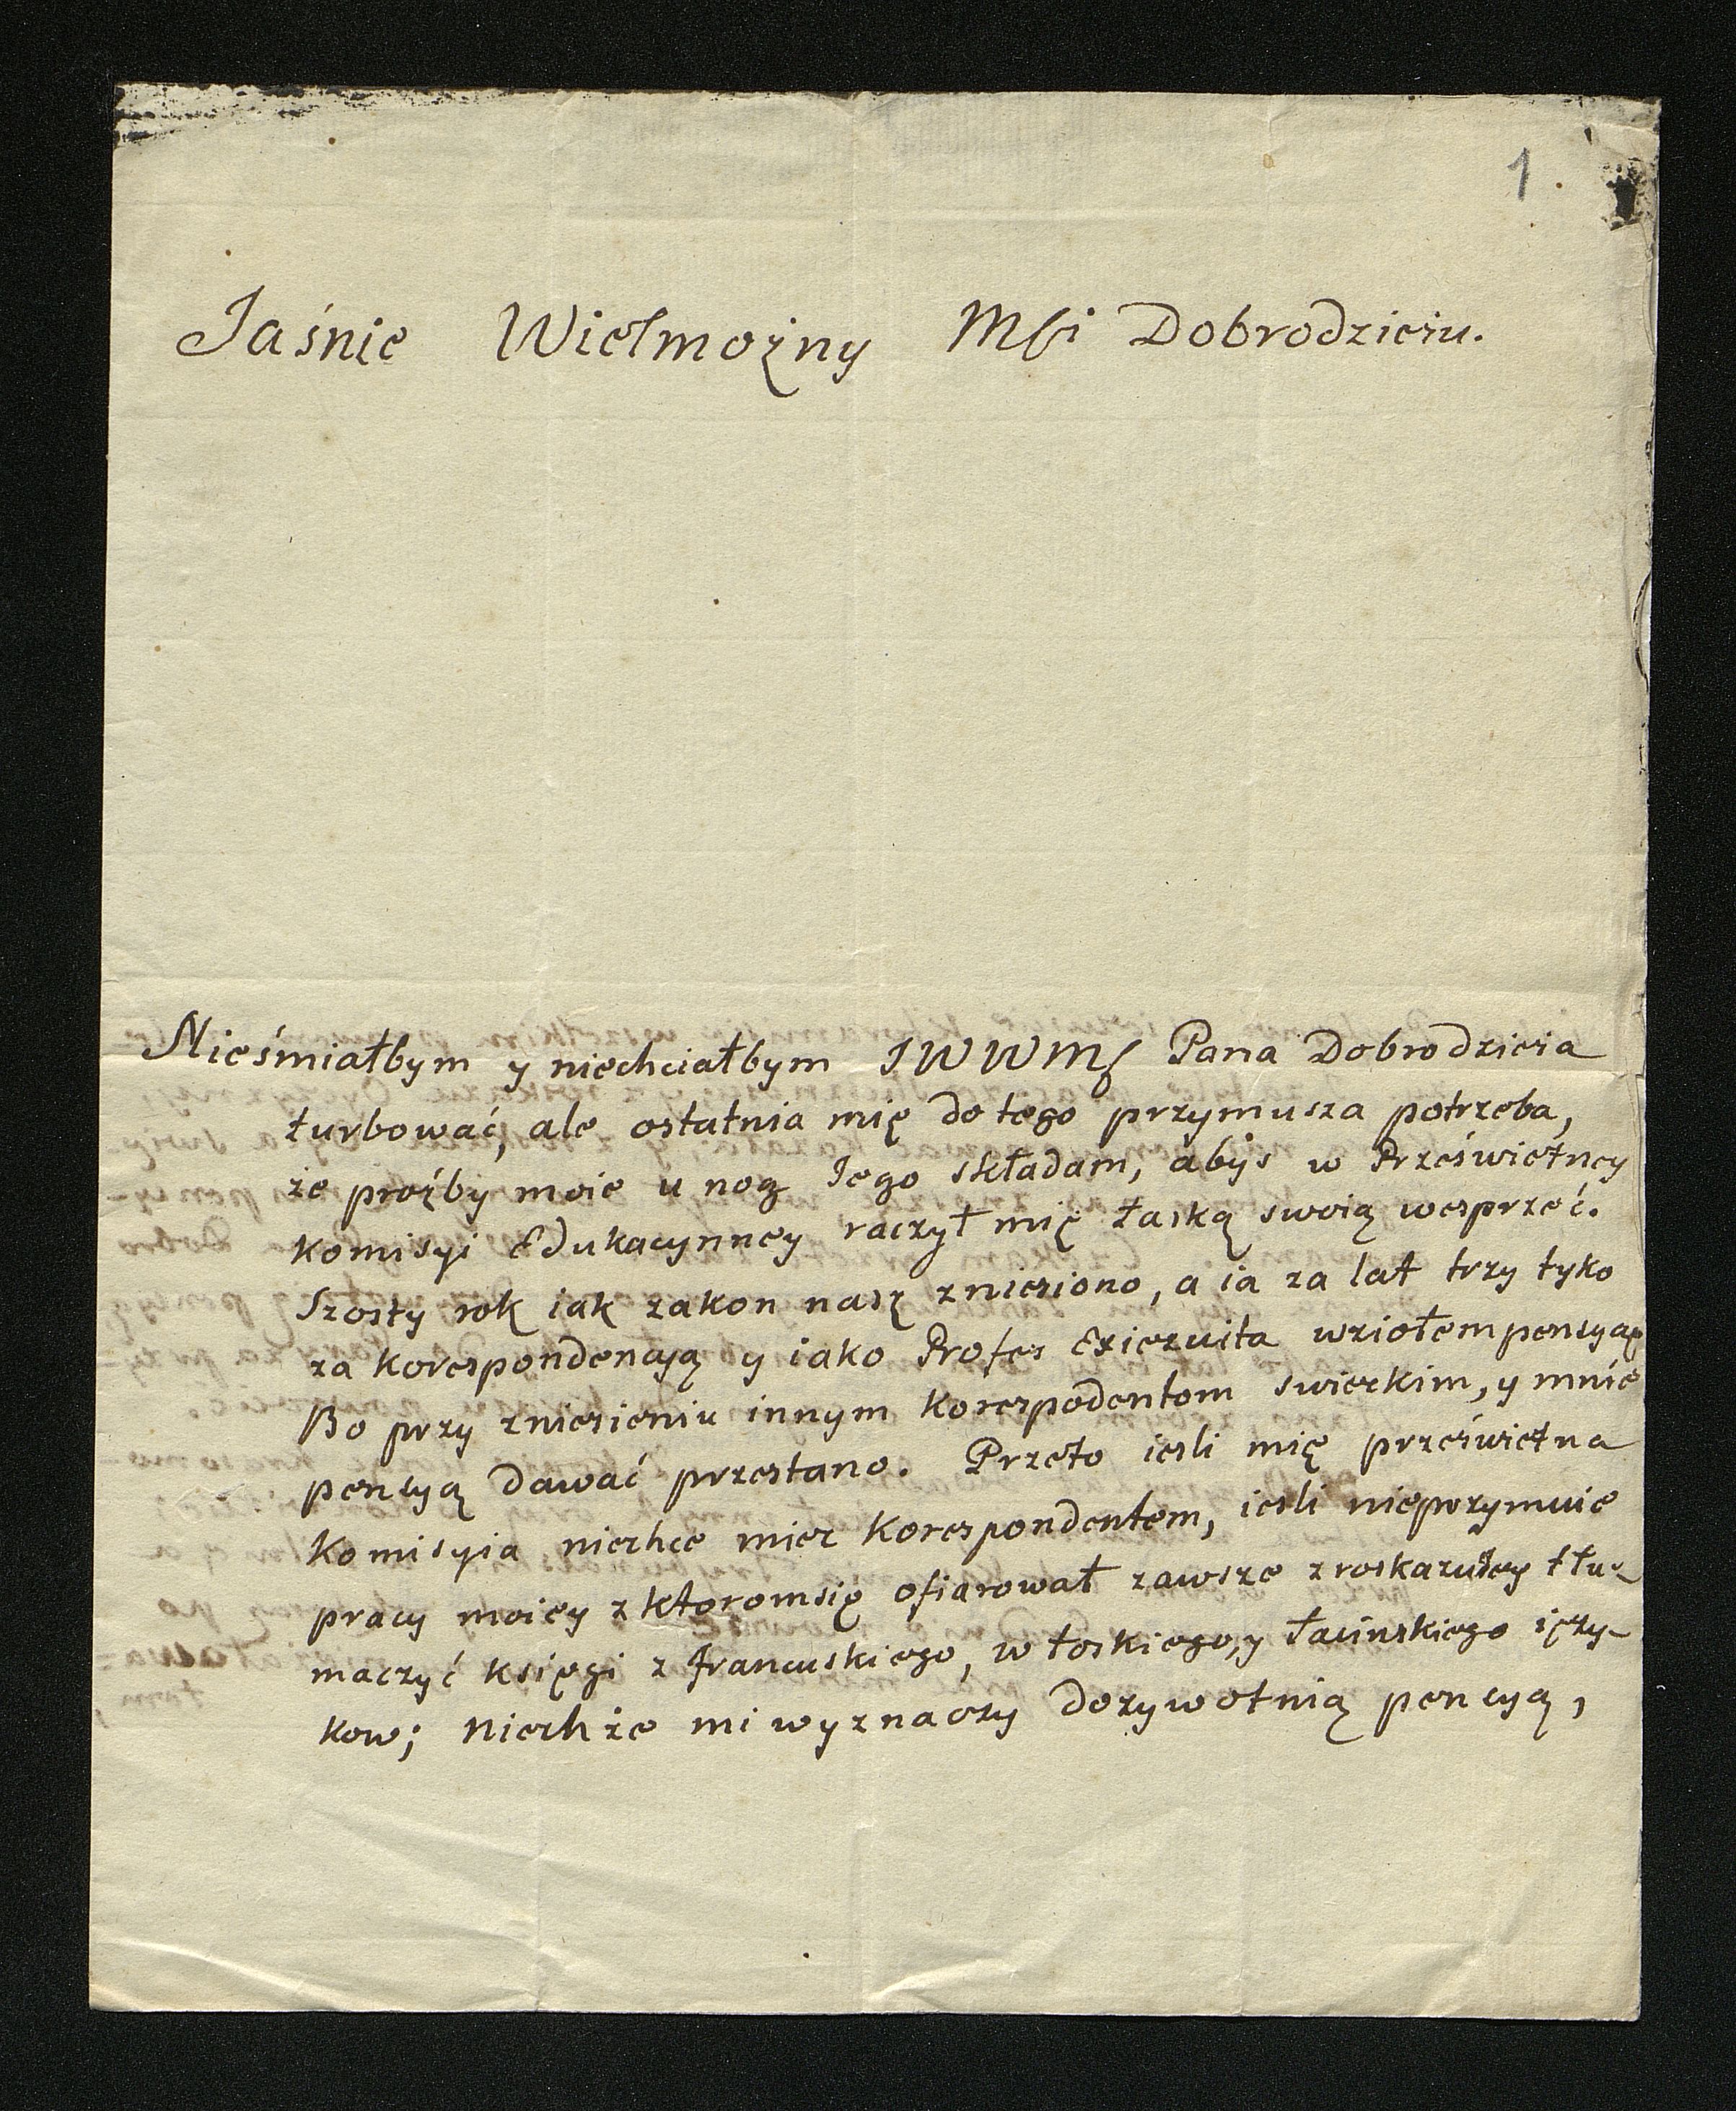 1
Jaśnie Wielmożny Mści Dobrodzieiu.
Nieśmiałbym y niechciałbym JWWMę Pana Dobrodzieia
turbować, ale ostatnia mię do tego przymusza potrzeba,
że proźby moie u nog Jego składam, abyś w Prześwietney
komisyi Edukacynney raczył mię łaską swoią wesprzeć.
Szosty rok iak zakon nasz zniesiono, a ia za lat trzy tyko
za korespondencyą y iako Profes Exiezuita wziołem pensyą,
Bo przy zniesieniu innym korespodentom swieckim, y mnie
pencyą dawać przestano. Przeto iesli mię prześwietna
komisyia niechce miec korespondentem, iesli nieprzymuie
pracy moiey z ktoromsię ofiarował zawsze z roskazu iey tłu-
maczyć księgi z francuskiego, włoskiego, y łacińskiego ięzy-
kow; niechże mi wyznaczy dozywotnią pencyą,